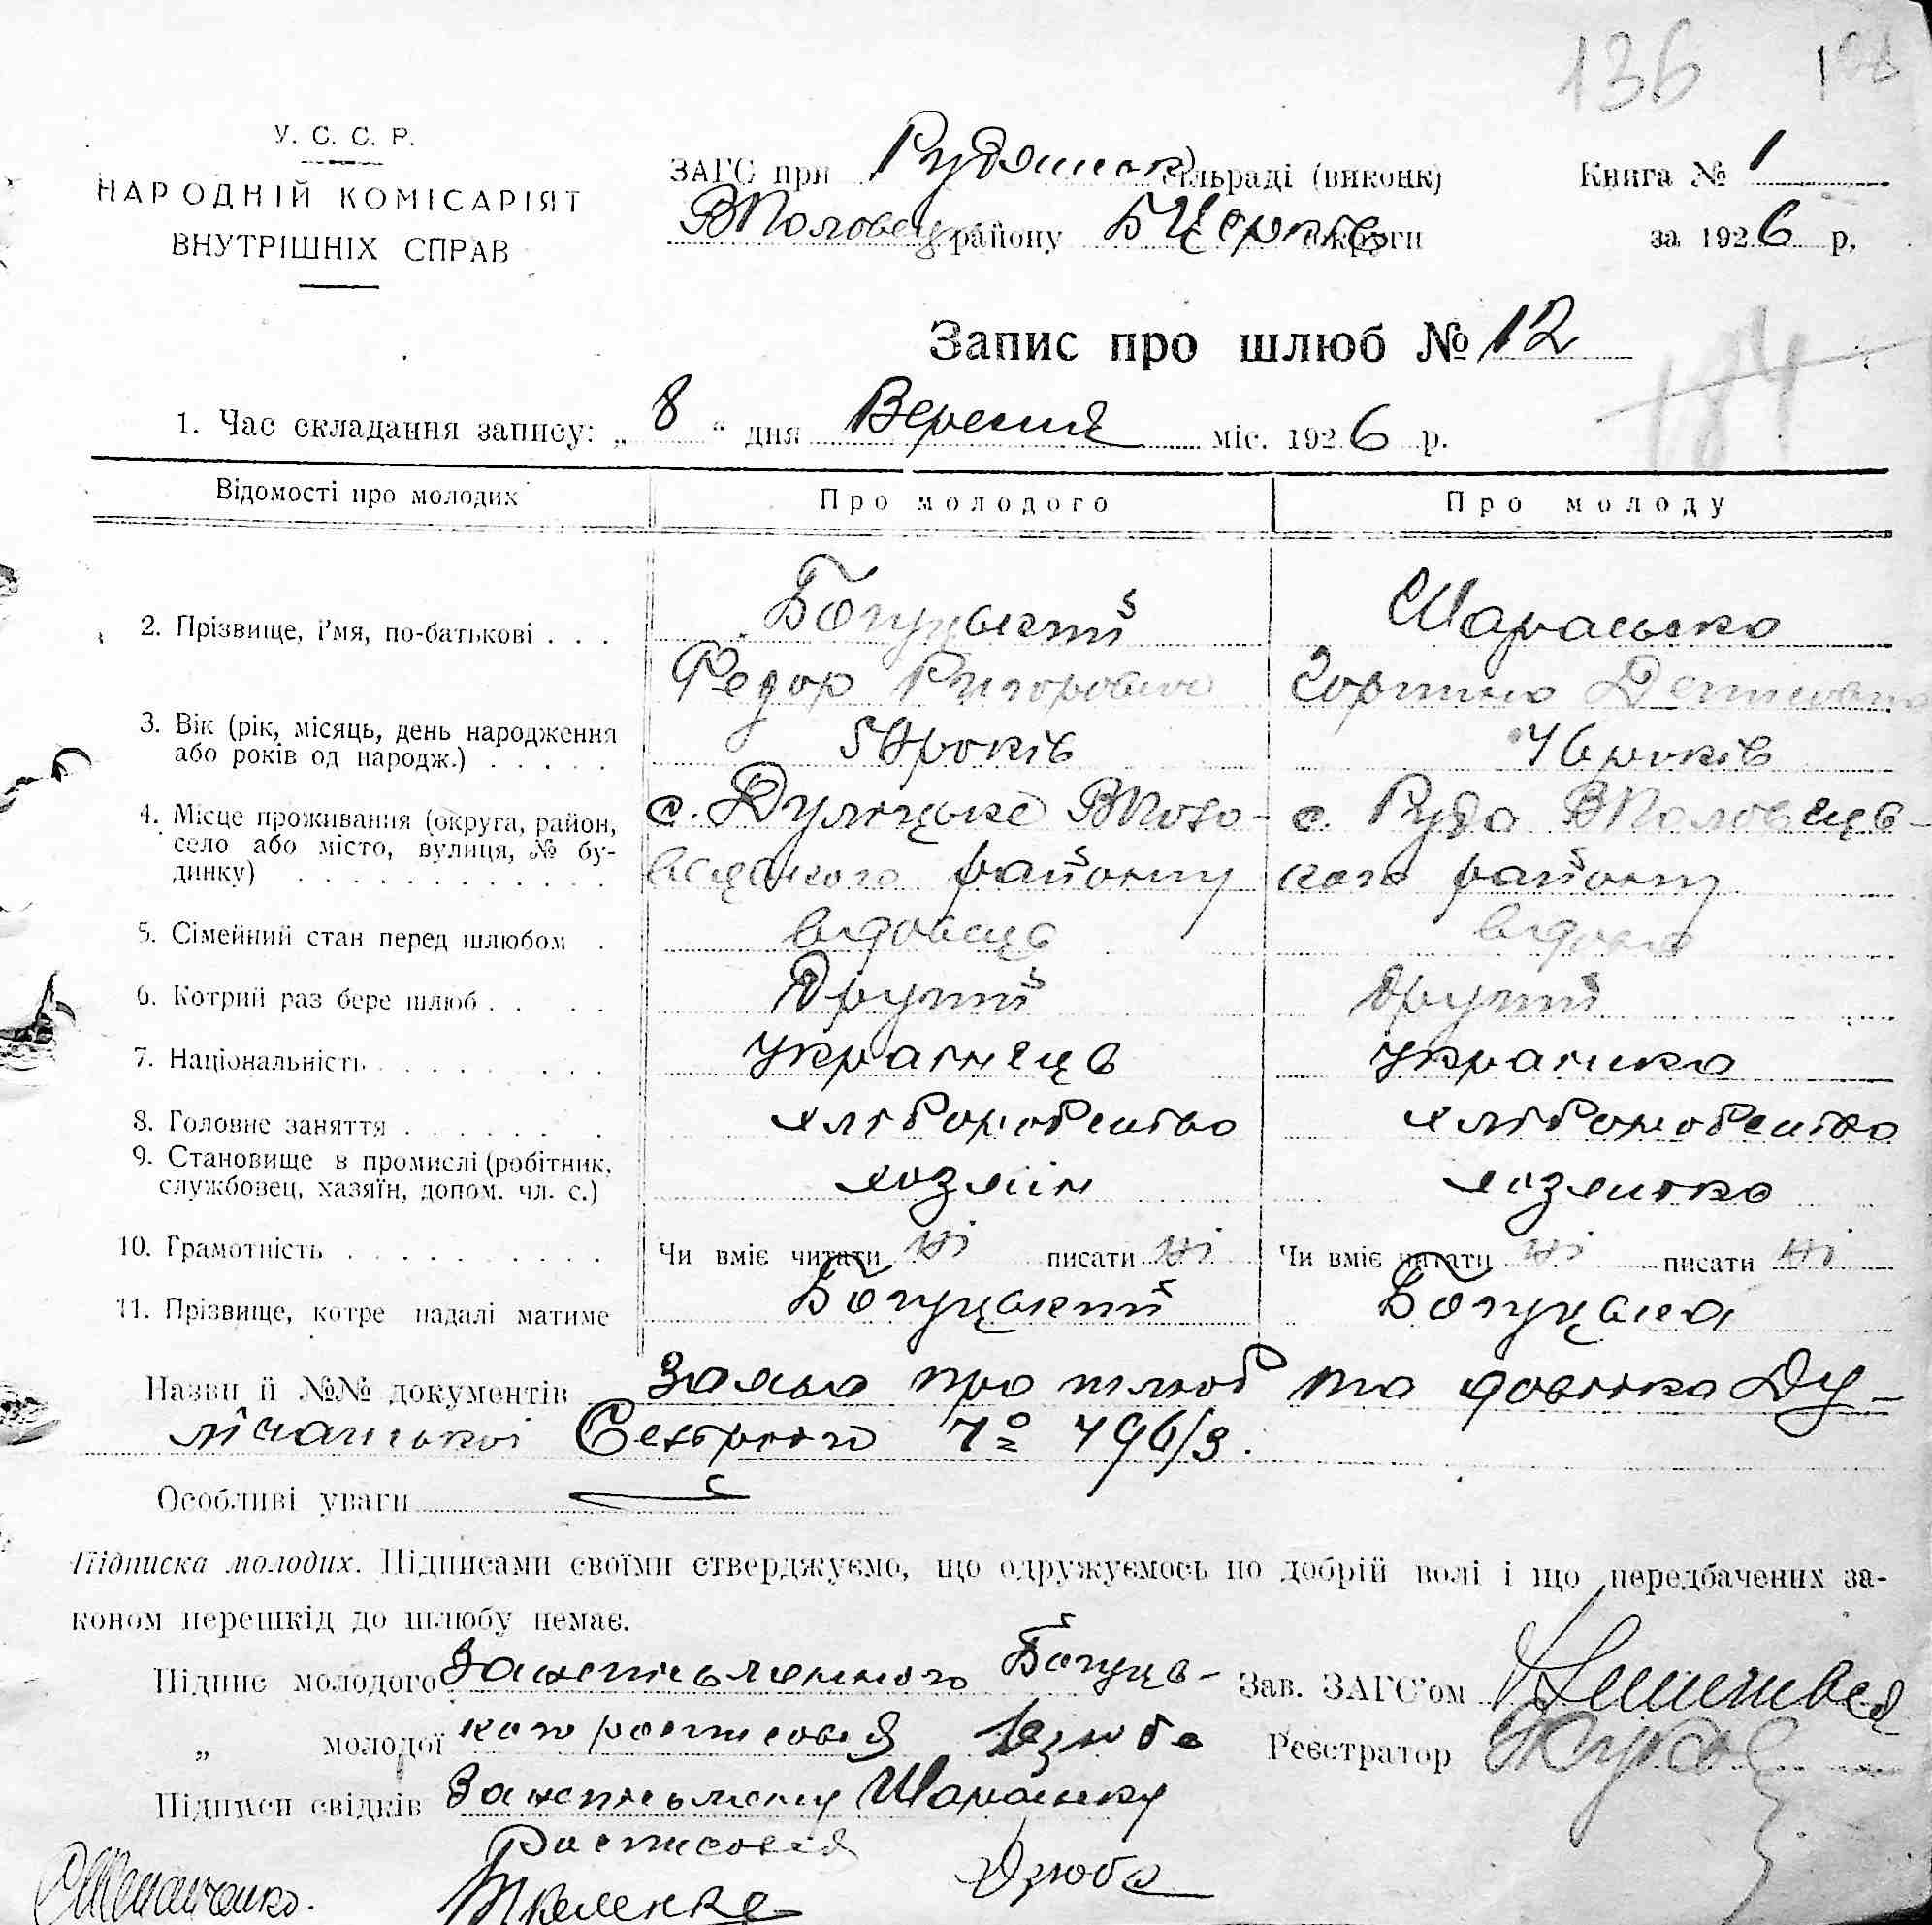 136
У. С. С. Р.
НАРОДНІЙ КОМІСАРІЯТ
ВНУТРІШНІХ СПРАВ
ЗАГС при Рудянськ сільраді (виконк)
ВПоловец району БЦерків округи
Книга № 1
за 1926 р.
Запис про шлюб № 12
184
1. Час складання запису: „ 8 “ дня Вересня міс. 1926 р.
Відомості про молодих Про молодого Про молоду
2. Прізвище, і'мя, по-батькові . . . Богуцький
Федор Григорович Горпина Денисовна
3. Вік (рік, місяць, день народження
або років од народж.) . . . . . років 46 років
4. Місце проживання (округа, район, с. Дулицьке ВПоло- с. Руда ВПоловець-
село або місто, вулиця, № бу- вецького району кого району
динку) . . . . . . . . . . . .
5. Сімейний стан перед шлюбом . вдовець вдова
6. Котрий раз бере шлюб . . . . Другий другий
7. Національність . . . . . . . . українець українка
8. Головне заняття . . . . . . . хліборобство хліборобство
9. Становище в промислі (робітник,
службовец, хазяїн, допом. чл. с.) хозяїн хозяйка
10. Грамотність . . . . . . . . . . Чи вміє читати ні писати ні Чи вміє читати ні писати ні
11. Прізвище, котре надалі матиме Богуцький Богуцька
Назви й №№ документів Заява про шлюб та довідка Ду-
лічанської № 796/3.
Особливі уваги
Підписка молодих. Підписами своїми стверджуємо, що одружуємось по добрій волі і що передбачених за-
коном перешкід до шлюбу немає.
Підпис молодого За неписьменного Богуць-
„ молодої кого росписався Дзюба
Зав. ЗАГС'ом
Реєстратор
Підписи свідків За неписьмену
Росписався Дзюба